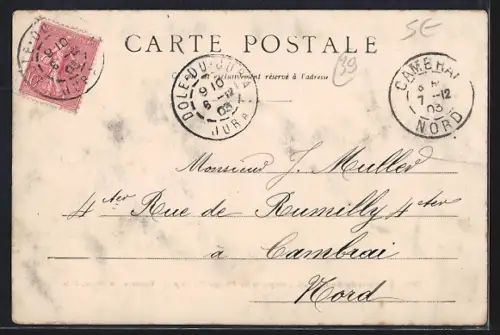 SE
CARTE POSTALE
39
exclusivement réservé à l'adresse
DOLE-DU-JURA
9 10
6 -12
03
JURA
CAMBRAI
7 -12
03
NORD
Monsieur J. Muller
4 ter Rue de Rumilly 4 ter
à
Cambrai
Nord